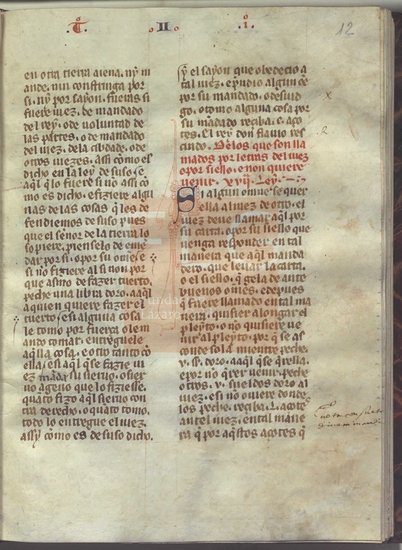 T. II i. 12
en otra tierra aiena. ny m
ande. nin constringa por
si. ny por sayon. fueras si
fuere iuez. de mandado
del rey. o de uoluntad de
las partes. o de mandado
del iuez. dela cibdade. o de
otros iuezes. assi como es
dicho en la ley de suso. e
aql q̄ lo fiziere si no assi co
mo es dicho. e fiziere algu
nas de las cosas q̄ les de
fendiemos de suso pues
que el señor de la tierra lo
sopiere. pienselo de emẽ
dar por si. o por su ome. e
si no fiziere al si non por
que asmo de fazer tuerto.
peche una libra doro. aaq̄l
aquien quiere fazer el
tuerto. e si alguna cosa
le tomo por fuerça o lem
ando tomar. entreguele
aq̄lla cosa. e otro tanto cõ
ella. e si aq̄l q̄ se fazie iu
ez manda su sieruo. o sier
uo ageno que lo fiziesse.
quãto fizo aq̄l sieruo con
tra derecho. o quãto tomo.
todo lo entregue el iuez.
assy cõmo es de suso dicho.
Sy el sayon que obedecio a
tal iuez. e prendio algun õe
por su mandado. o desnudo
go. o tomo alguna cosa por
su mãdado reciba. c. aço
tes. El rey don flauio res
cindo. Delos que son lla
mados por letras del iuez
o por siello. e non quieren
uenir. xvij. Ley.
Si algun omne se quer
ella al iuez de otro. el
iuez deue llamar aq̄l por
su carta. o por su siello que
uenga responder en tal
manera que aq̄l manda
dero. que leuar la carta.
o el siello. q̄ gela de ante
buenos omes. e depues
q̄ fuere llamado en tal ma
nera. quisier alongar el
pleyto. o no quisiere ue
nir al pleyto. por que se as
conde sola mientre peche.
v. s. doro. aaq̄l q̄ se q̄rella.
e por no q̄rer uenir. peche
otros. v. sueldos doro al
iuez. e si no ouiere donde
los peche. reciba. L. açotes
ante el iuez. en tal mane
ra q̄ por aq̄stos açotes q̄
Fundación Lázaro